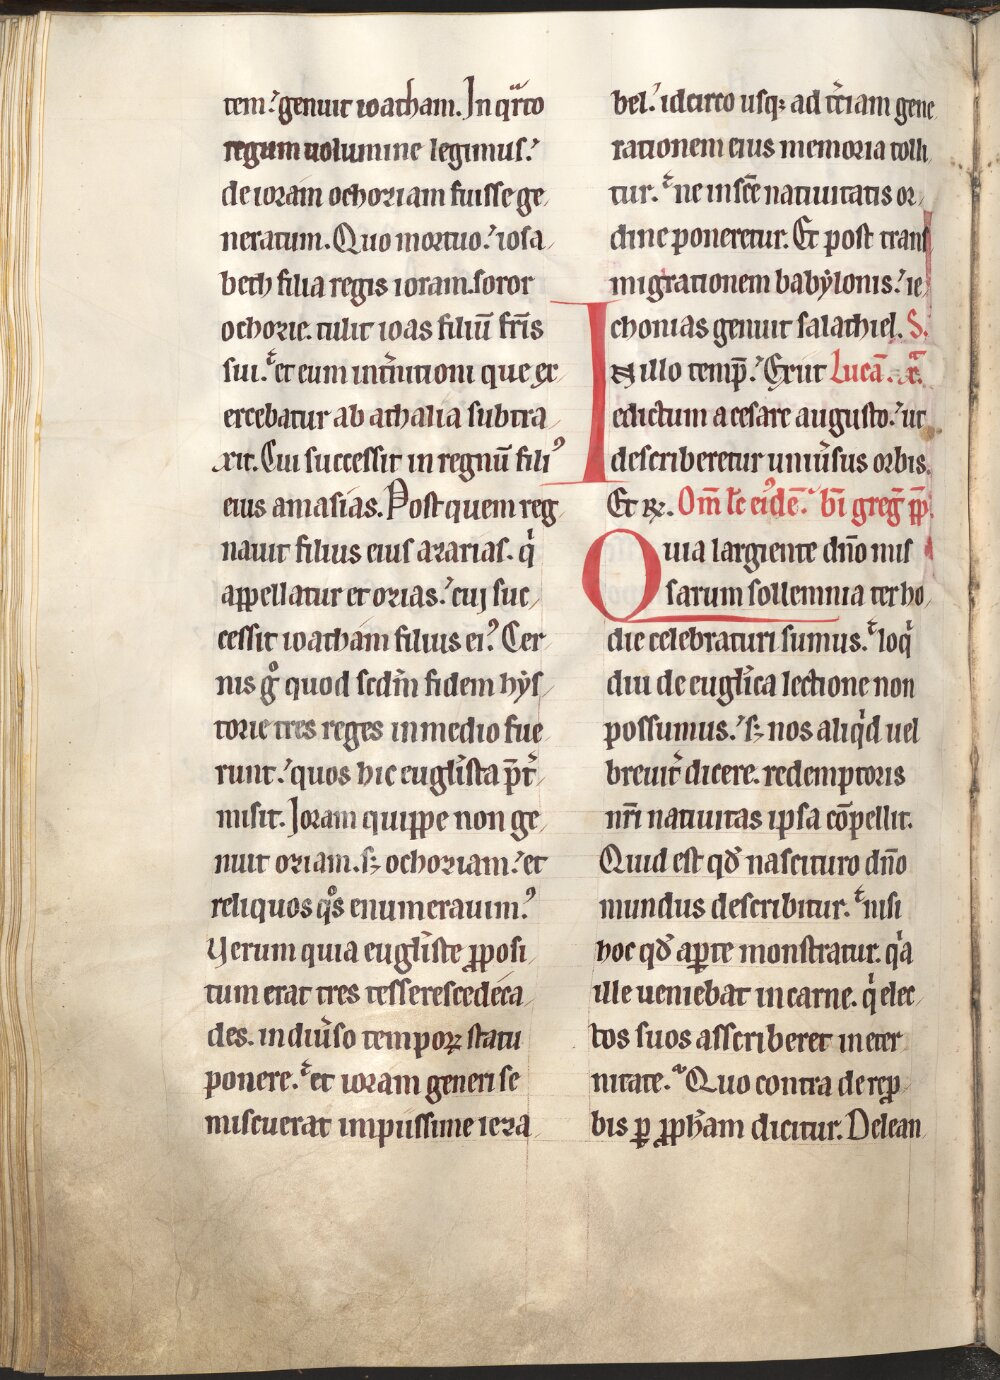 tem.' genuit ioatham. In qͣrto
regum uolumine legimus.'
de ioram ochoziam fuisse ge
neratum. Quo mortuo.' iosa
beth filia regis ioram. soror
ochozie. tulit ioas filiū fr̄is
sui. et eum int̓nitioni que ex
ercebatur ab athalia subtra
xit. Cui successit in regnū fili᾽
eius amasias. Post quem reg
nauit filius eius azarias. qͥ
appellatur et ozias.' cuj suc
cessit ioatham filius ei᾽. Cer
nis gͦ quod scdm̄ fidem hẏs
torie tres reges in medio fue
runt.' quos hic eugl̓ista p̄t̓
misit. Ioram quippe non ge
nuit oziam. sꝫ ochoziam.' et
reliquos qͦs enumerauim᾽.
Verum quia eugl̓iste ꝓposi
tum erat tres tesserescedeca
des. in diu̓so tempoꝝ statu
ponere. et ioram generi se
miscuerat impiissime ieza
bel.' idcirco usqꝫ ad t̓ciam gene
rationem eius memoria tolli
tur. ne in scē natiuitatis or
dine poneretur. Et post trans
migrationem babẏlonis.' ie
chonias genuit salathiel. S.
IN illo temp̄.' Exiit Lucā.
edictum a cesare augusto.' ut
describeretur uniu̓sus orbis.
Et ꝶ. Om̄ lc̄ ei᾽dē. bi̅ greg̅ p̄p̄.
Quia largiente dn̄o mis
sarum sollemnia ter ho
die celebraturi sumus. loqͥ
diu de eugl̓ica lectione non
possumus.' sꝫ nos aliqͥd uel
breuit̓ dicere. redemptoris
nr̄i natiuitas ipsa cōpellit.
Quid est qđ nascituro dn̄o
mundus describitur. nisi
hoc qđ aꝑte monstratur. qͥa
ille ueniebat in carne. qͥ elec
tos suos asscriberet in eter
nitate. Quo contra de repͦ
bis ꝑ ꝓph̄am dicitur. Delean